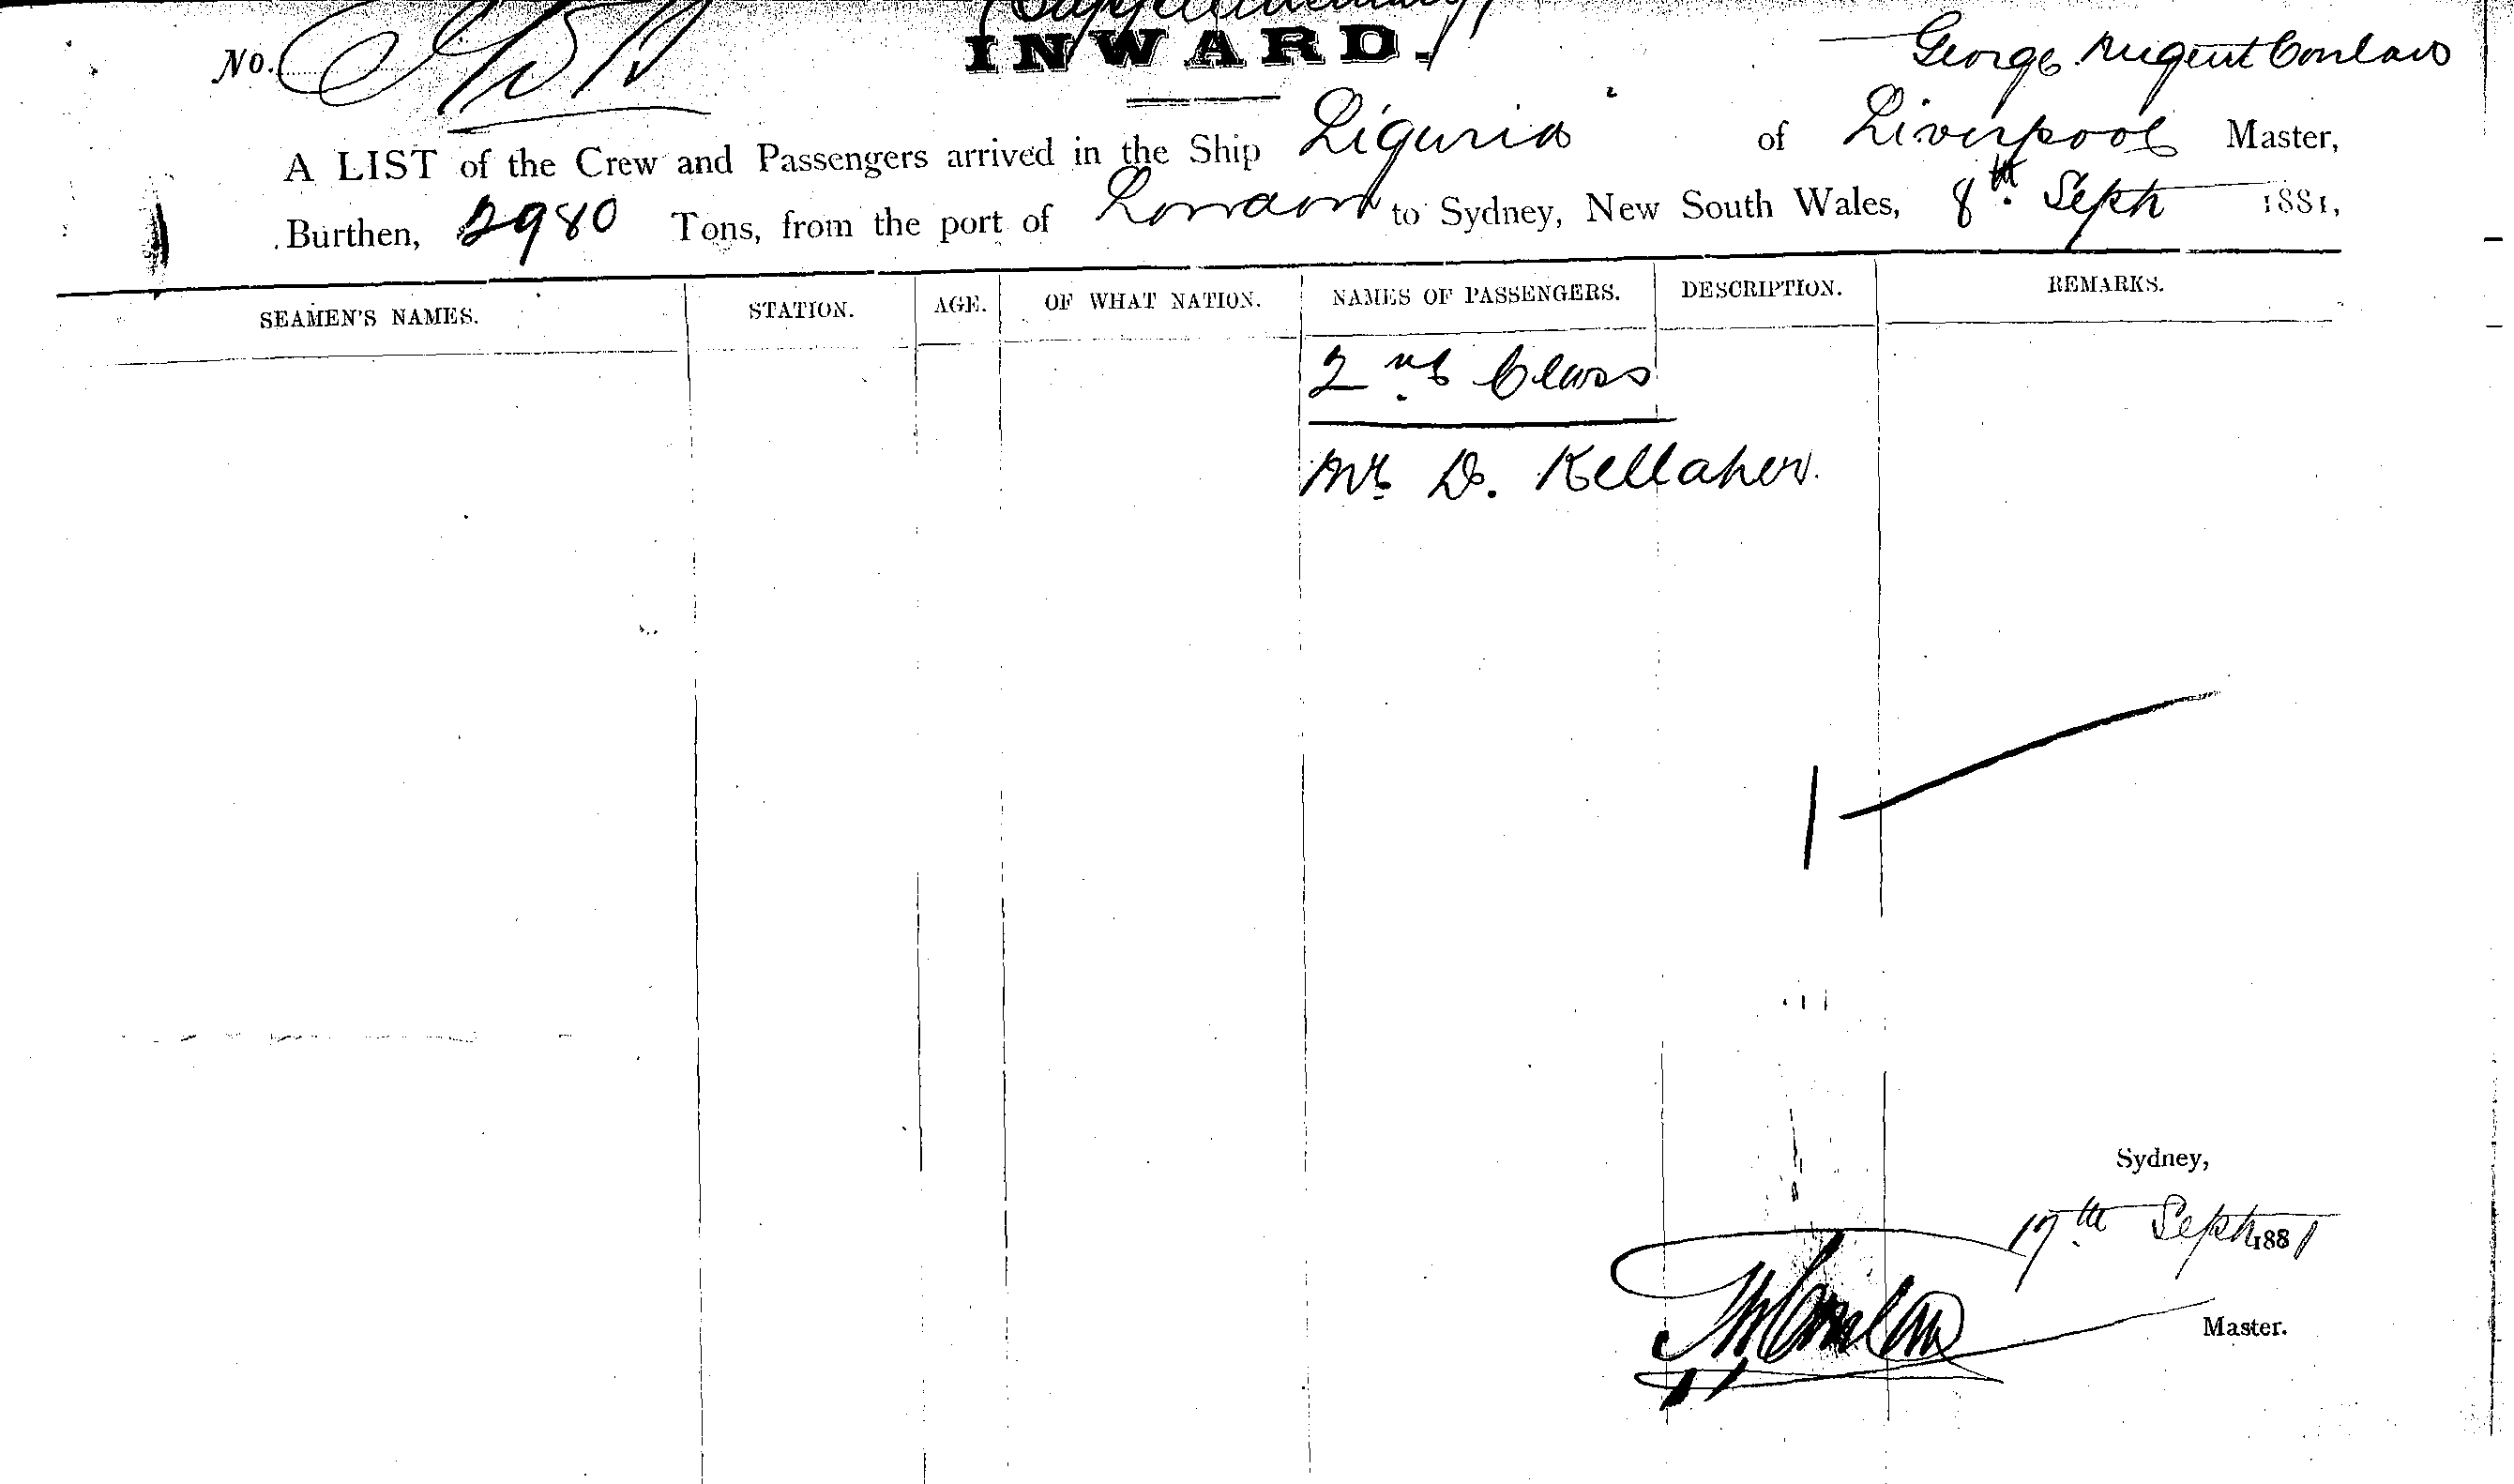 (Supplementary)
No.
INWARD.
George Nugent Conlan
A LIST of the Crew and Passengers arrived in the Ship Liguria of Liverpool Master,
Burthen, 2980 Tons, from the port of London to Sydney, New South Wales, 8th Sept 1881,
SEAMEN'S NAMES. STATION. AGE. OF WHAT NATION. NAMES OF PASSENGERS. DESCRIPTION. REMARKS.
2nd Class
Mr D. Kellaher
1
Sydney,
17th Sept 1881
Master.